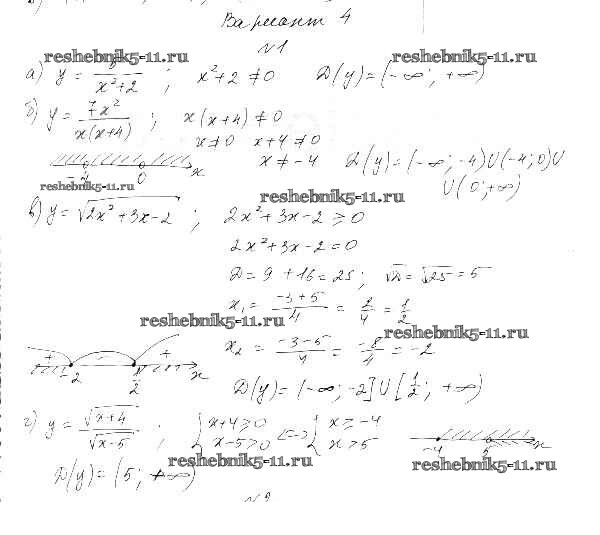 Вариант 4
N1
reshebnik5-11.ru reshebnik5-11.ru
а) y = 3/(x²+2) ; x²+2 ≠ 0 D(y)=(-∞; +∞)
б) y = 7x²/(x(x+4)) ; x(x+4) ≠ 0
x ≠ 0 x+4 ≠ 0
-4 0 x x ≠ -4 D(y)=(-∞; -4)U(-4; 0)U
U(0; +∞)
reshebnik5-11.ru reshebnik5-11.ru
в) y = √(2x²+3x-2) ; 2x²+3x-2 ≥ 0
2x²+3x-2=0
D = 9 + 16 = 25 ; √D = √25 = 5
x₁ = (-3+5)/4 = 2/4 = 1/2
reshebnik5-11.ru reshebnik5-11.ru
x₂ = (-3-5)/4 = -8/4 = -2
+ - + -2 1/2 x
D(y)=(-∞; -2]U[1/2; +∞)
г) y = √(x+4)/√(x-5) ; { x+4 ≥ 0 x-5 > 0 <=> { x ≥ -4 x > 5 -4 5 x
reshebnik5-11.ru reshebnik5-11.ru
D(y) = (5; +∞)